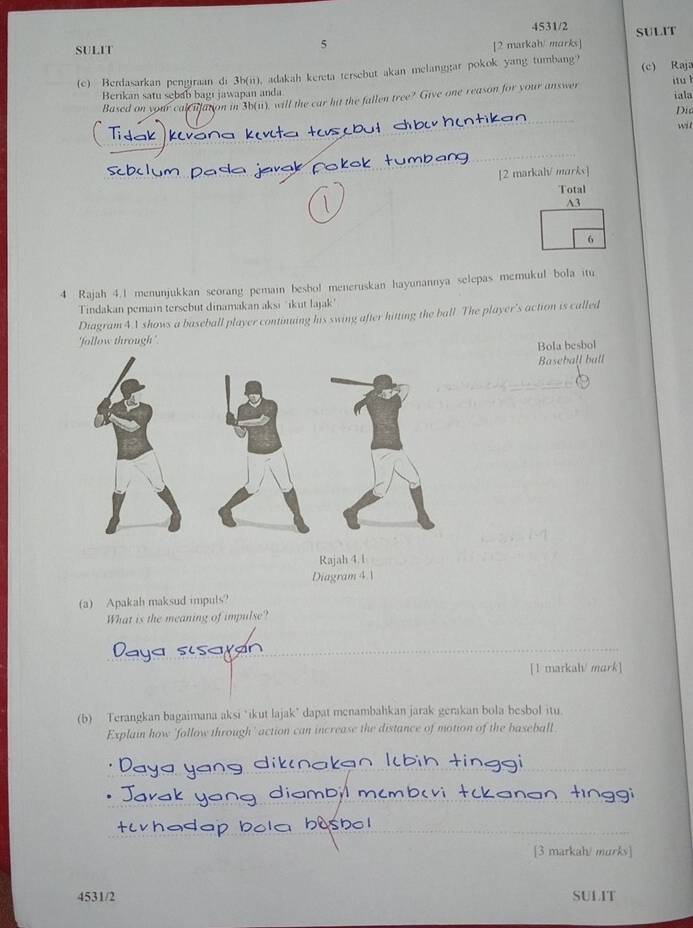 4531/2
SULIT
SULIT
5
[2 markah/ marks]
(c) Berdasarkan pengiraan di 3b(ii), adakah kereta tersebut akan melanggar pokok yang tumbang?
Berikan satu sebab bagi jawapan anda.
Based on your calculation in 3b(ii), will the car hit the fallen tree? Give one reason for your answer
(c) Raja
itu
iala
Dia
wit
(Tidak) kerana kereta tersebut diberhentikan
sebelum pada jarak pokok tumbang
[2 markah/ marks]
1
Total
A3
6
4 Rajah 4.1 menunjukkan seorang pemain besbol meneruskan hayunannya selepas memukul bola itu
Tindakan pemain tersebut dinamakan aksi 'ikut lajak'
Diagram 4.1 shows a baseball player continuing his swing after hitting the ball. The player's action is called
'follow through'.
Bola besbol
Baseball ball
Rajah 4.1
Diagram 4.1
(a) Apakah maksud impuls?
What is the meaning of impulse?
Daya sesaran
[1 markah/ mark]
(b) Terangkan bagaimana aksi 'ikut lajak' dapat menambahkan jarak gerakan bola besbol itu.
Explain how 'follow through' action can increase the distance of motion of the baseball.
• Daya yang dikenakan lebih tinggi
• Jarak yang diambil memberi tekanan tinggi
terhadap bola besbol
[3 markah/ marks]
4531/2
SULIT